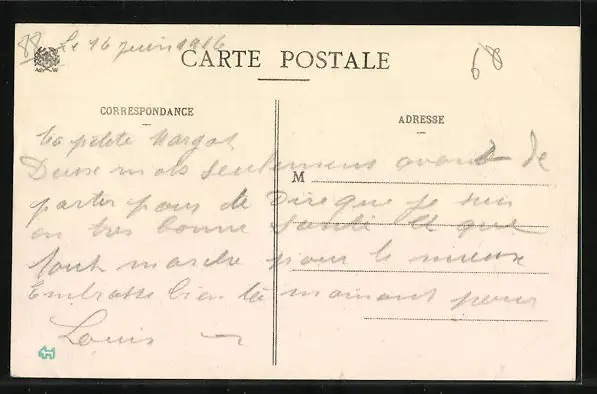 88 Le 16 Juin 1916
CARTE POSTALE
68
CORRESPONDANCE
ADRESSE
Ma petite Margot
Deux mots seulement avant de
M
partir pour te Dire que je suis
en très bonne santé et que
tout marche pour le mieux
Embrasse bien ta maman pour
Louis